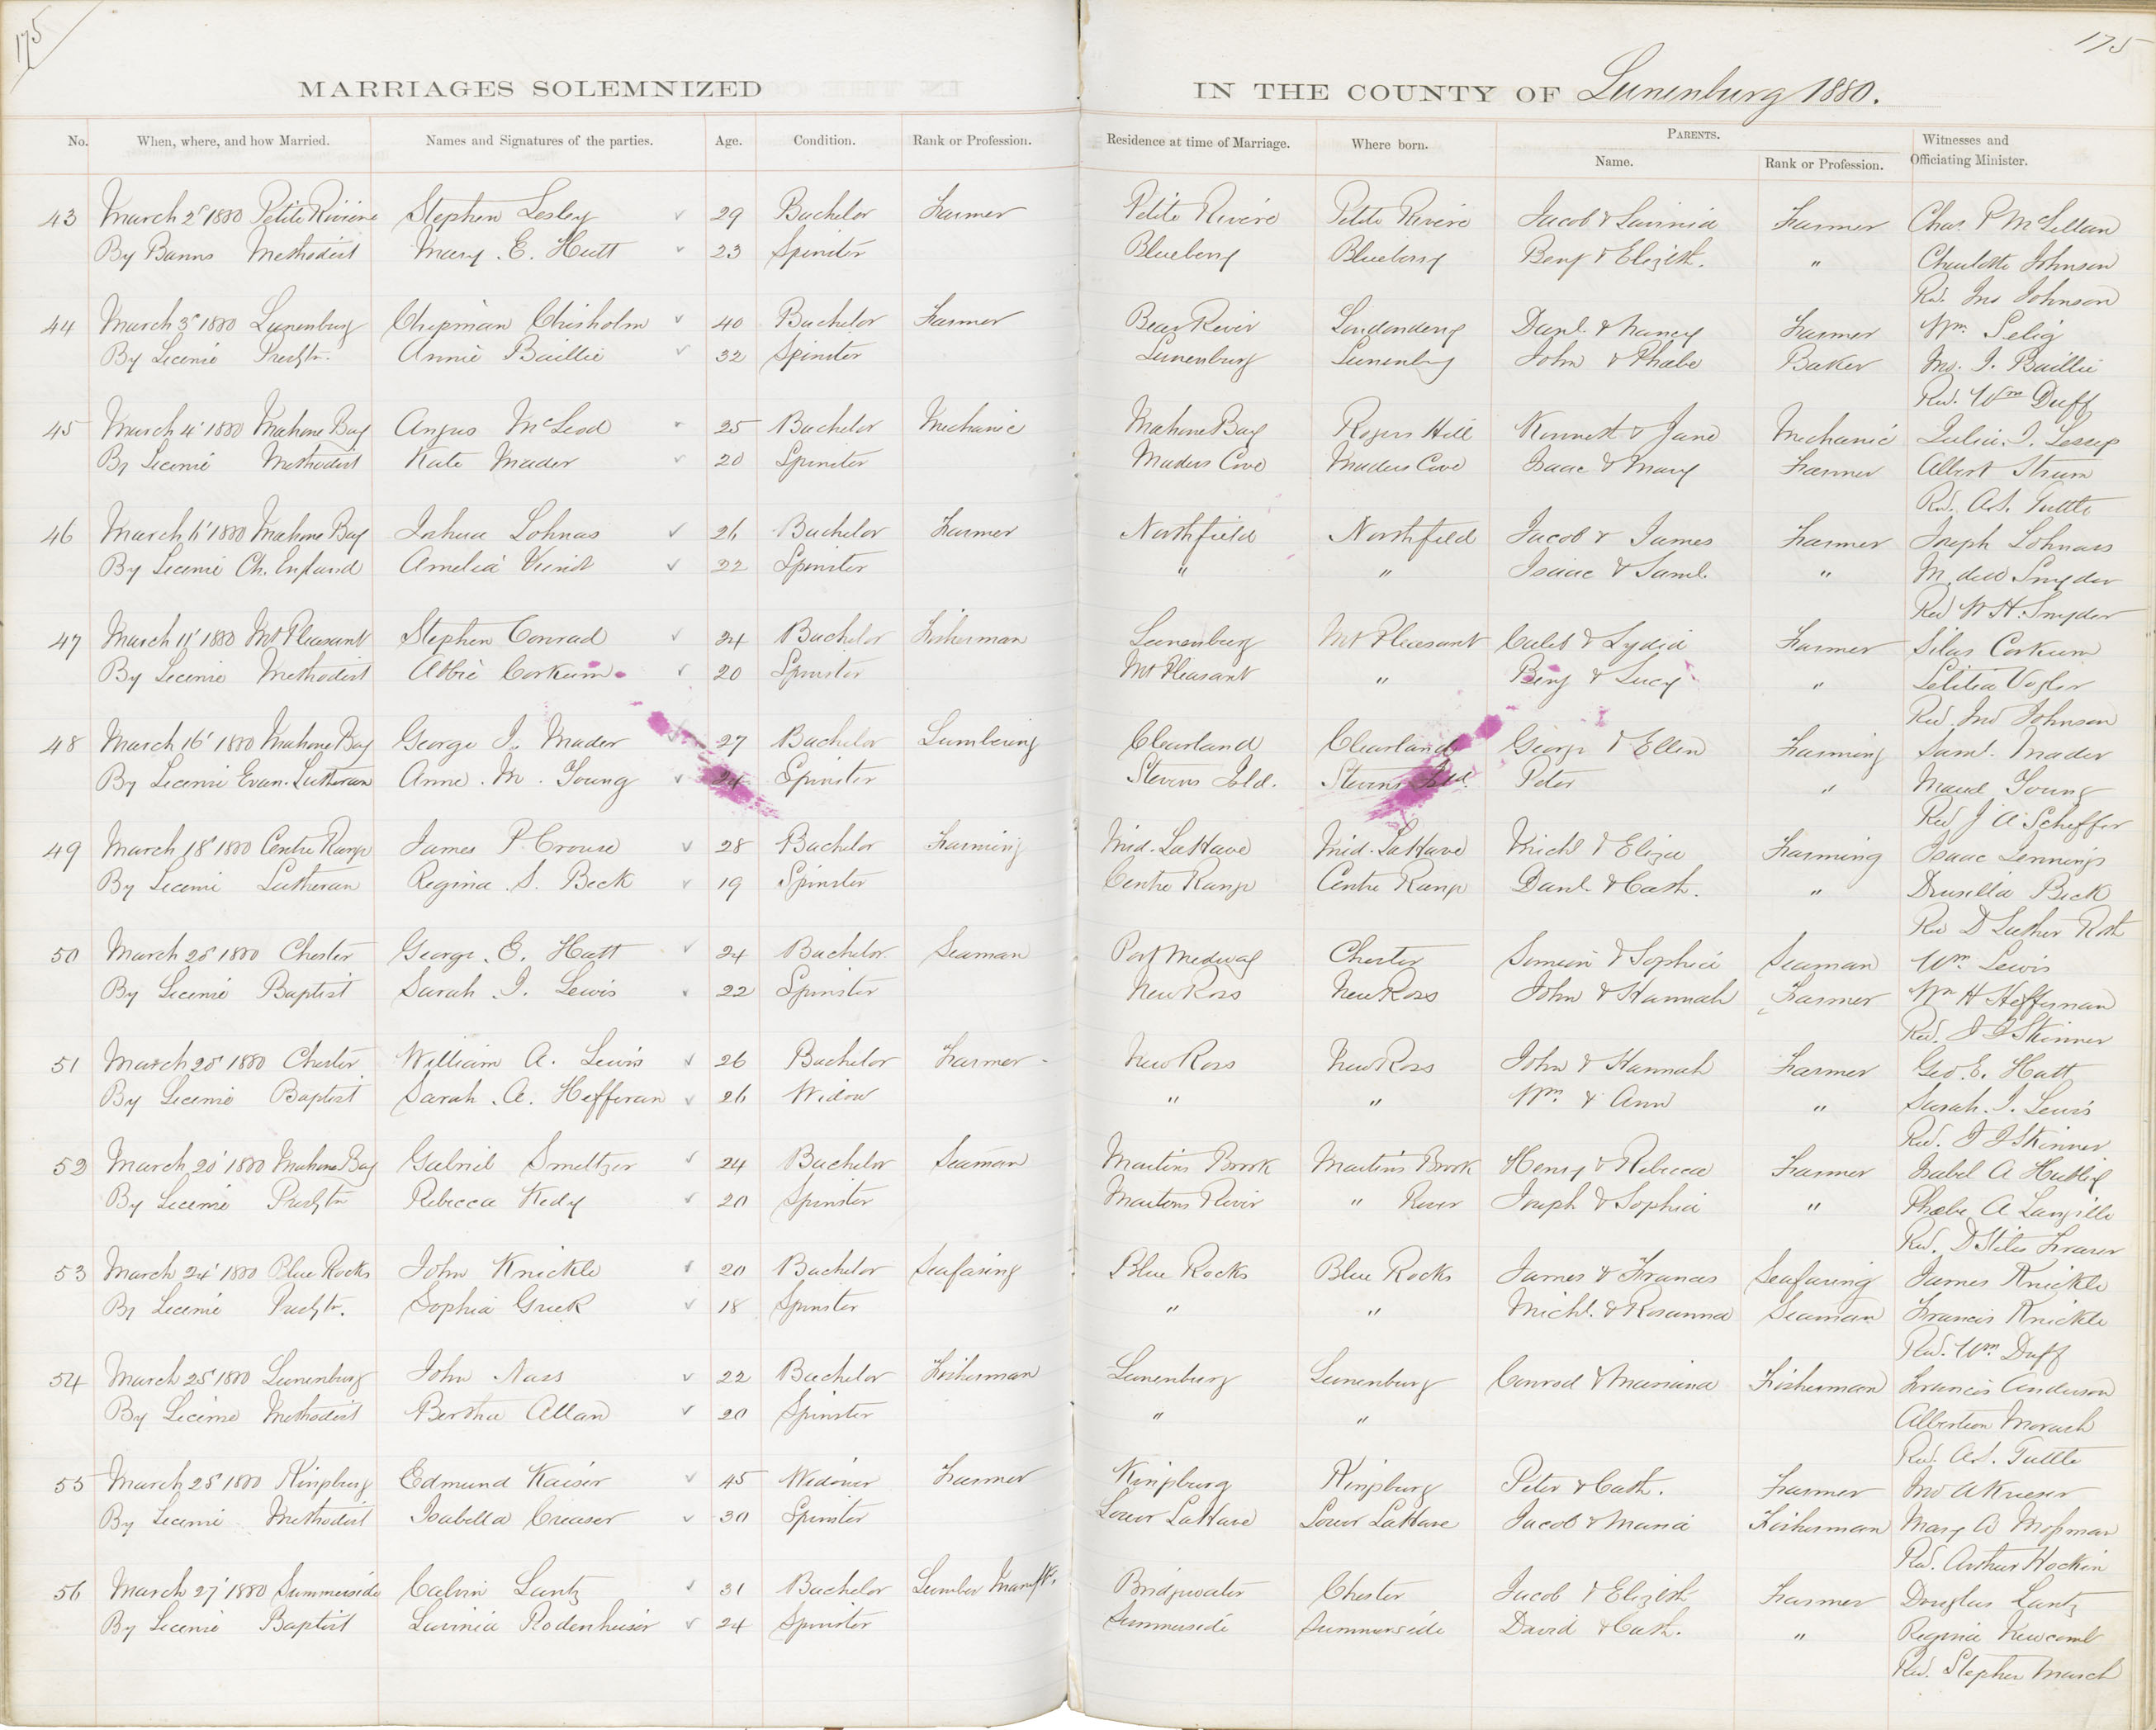 175
175
MARRIAGES SOLEMNIZED IN THE COUNTY OF Lunenburg 1880.
No. When, where, and how Married. Names and Signatures of the parties. Age. Condition. Rank or Profession. Residence at time of Marriage. Where born. PARENTS. Name. Rank or Profession. Witnesses and Officiating Minister.
43 March 2' 1880 Petite Riviere Stephen Lesley 29 Bachelor Farmer Petite Riviere Petite Riviere Jacob & Lavinia Farmer Chas. P McLellan
By Banns Methodist Mary. E. Hutt 23 Spinster Blueberry Blueberry Benj & Elizbth. " Charlotte Johnson
Rev. Jno Johnson
44 March 3' 1880 Lunenburg Chipman Chisholm 40 Bachelor Farmer Bear River Londonderry Danl. & Nancy Farmer Wm Selig
By License Presbtn. Annie Baillie 32 Spinster Lunenburg Lunenburg John & Phœbe Baker Jno. I. Baillie
Rev. Wm Duff
45 March 4' 1880 Mahone Bay Angus McLeod 25 Bachelor Mechanic Mahone Bay Rogers Hill Kenneth & Jane Mechanic Julia. I. Lessep
By License Methodist Kate Mader 20 Spinster Maders Cove Maders Cove Isaac & Mary Farmer Albert Strum
Rev. A.S. Tuttle
46 March 11' 1880 Mahone Bay Joshua Lohnas 26 Bachelor Farmer Northfield Northfield Jacob & James Farmer Joseph Lohnass
By License Ch. England Amelia 22 Spinster " " Isaac & Saml. " Snyder
Rev W. H. Snyder
47 March 11' 1880 Mt Pleasant Stephen Conrad 24 Bachelor Fisherman Lunenburg Mt Pleasant Caleb & Lydia Farmer Silas Corkum
By License Methodist Abbie Corkum 20 Spinster Mt Pleasant " Benj & Lucy " Letitia Vogler
Rev. Jno Johnson
48 March 16' 1880 Mahone Bay George I. Mader 27 Bachelor Lumbering Clearland Clearland George & Ellen Farming Saml. Mader
By License Evan. Lutheran Anne. M. Young 24 Spinster Stevens Sold. Stevens Sold. Peter " Maud Young
Rev J A Scheffer
49 March 18' 1880 Centre Range James P. Crouse 28 Bachelor Farming Mid. LaHave Mid. LaHave Michl & Eliza Farming Isaac Jennings
By License Lutheran Regina. S. Beck 19 Spinster Centre Range Centre Range Danl. & Cath. " Drusilla Beck
Rev D Luther Roth
50 March 20' 1880 Chester George. E. Hatt 24 Bachelor Seaman Port Medway Chester Simeon & Sophia Seaman Wm Lewis
By License Baptist Sarah. I. Lewis 22 Spinster New Ross New Ross John & Hannah Farmer Wm H Heffernan
Rev. I I Skinner
51 March 20' 1880 Chester William A. Lewis 26 Bachelor Farmer New Ross New Ross John & Hannah Farmer Geo. E. Hatt
By License Baptist Sarah. A. Hefferan 26 Widow " " Wm & Ann " Sarah. I. Lewis
Rev. I I Skinner
52 March 20' 1880 Mahone Bay Gabriel Smeltzer 24 Bachelor Seaman Martins Brook Martins Brook Henry & Rebecca Farmer Isabel A Hubley
By License Presbtn Rebecca Kedy 20 Spinster Martins River " River Joseph & Sophia " Phœbe A Langille
Rev. D Stiles Fraser
53 March 24' 1880 Blue Rocks John Knickle 20 Bachelor Seafaring Blue Rocks Blue Rocks James & Frances Seafaring James Knickle
By License Presbtn. Sophia Greek 18 Spinster " " Michl. & Rosanna Seaman Francis Knickle
Rev. Wm Duff
54 March 25' 1880 Lunenburg John Nass 22 Bachelor Fisherman Lunenburg Lunenburg Conrad & Mariana Fisherman Francis Anderson
By License Methodist Bertha Allan 20 Spinster " " Morash
Rev. A.S. Tuttle
55 March 25' 1880 Kingsburg Edmund Kaiser 45 Widower Farmer Kingsburg Kingsburg Peter & Cath. Farmer Jno
By License Methodist Isabella Creaser 30 Spinster Lower LaHave Lower LaHave Jacob & Maria Fisherman Mary A Mossman
Rev. Arthur Hockin
56 March 27' 1880 Summerside Calvin Lantz 31 Bachelor Lumber Manuftr. Bridgewater Chester Jacob & Elizbth Farmer Douglas Lantz
By License Baptist Lavinia Rodenheiser 24 Spinster Summerside Summerside David & Cath. " Regina Newcomb
Rev. Stephen March